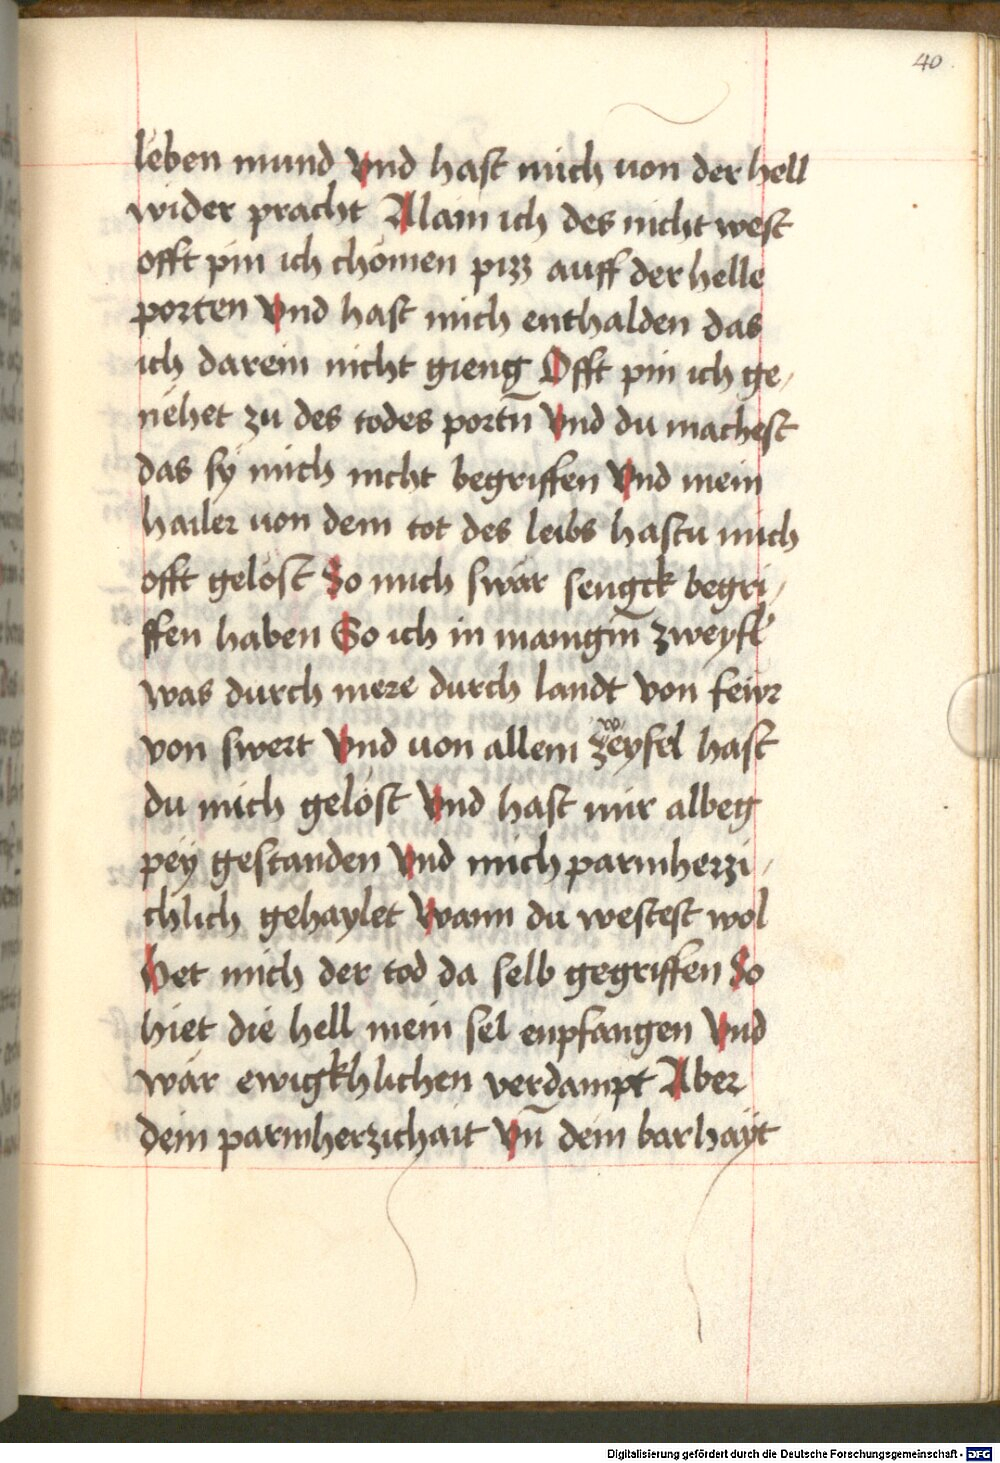 40
leben mund Vnd hast mich von der hell
wider pracht Alain ich des nicht west
offt pin ich chömen pizz auff der helle
porten Vnd hast mich enthalden das
ich darein nicht gieng Offt pin ich ge,
nehet zu des todes portn̄ Vnd du machest
das sy mich nicht begriffen Vnd mein
hailer von dem tot des leibs hastu mich
offt gelöst So mich swär sengck begri,
ffen haben So ich in manigm̄ zweyfl
was durch mere durch landt von fewr
von swert Vnd von allem zweyfel hast
du mich gelöst Vnd hast mir albeg
pey gestanden Vnd mich parmherzi,
chlich gehaylet Wann du westest wol
Het mich der tod da selb gegriffen So
hiet die hell mein sel enpfangen Vnd
wär ewigkhlichen verdampt Aber
dein parmherzichait Vn̄ dein barhayt
Digitalisierung gefördert durch die Deutsche Forschungsgemeinschaft - DFG